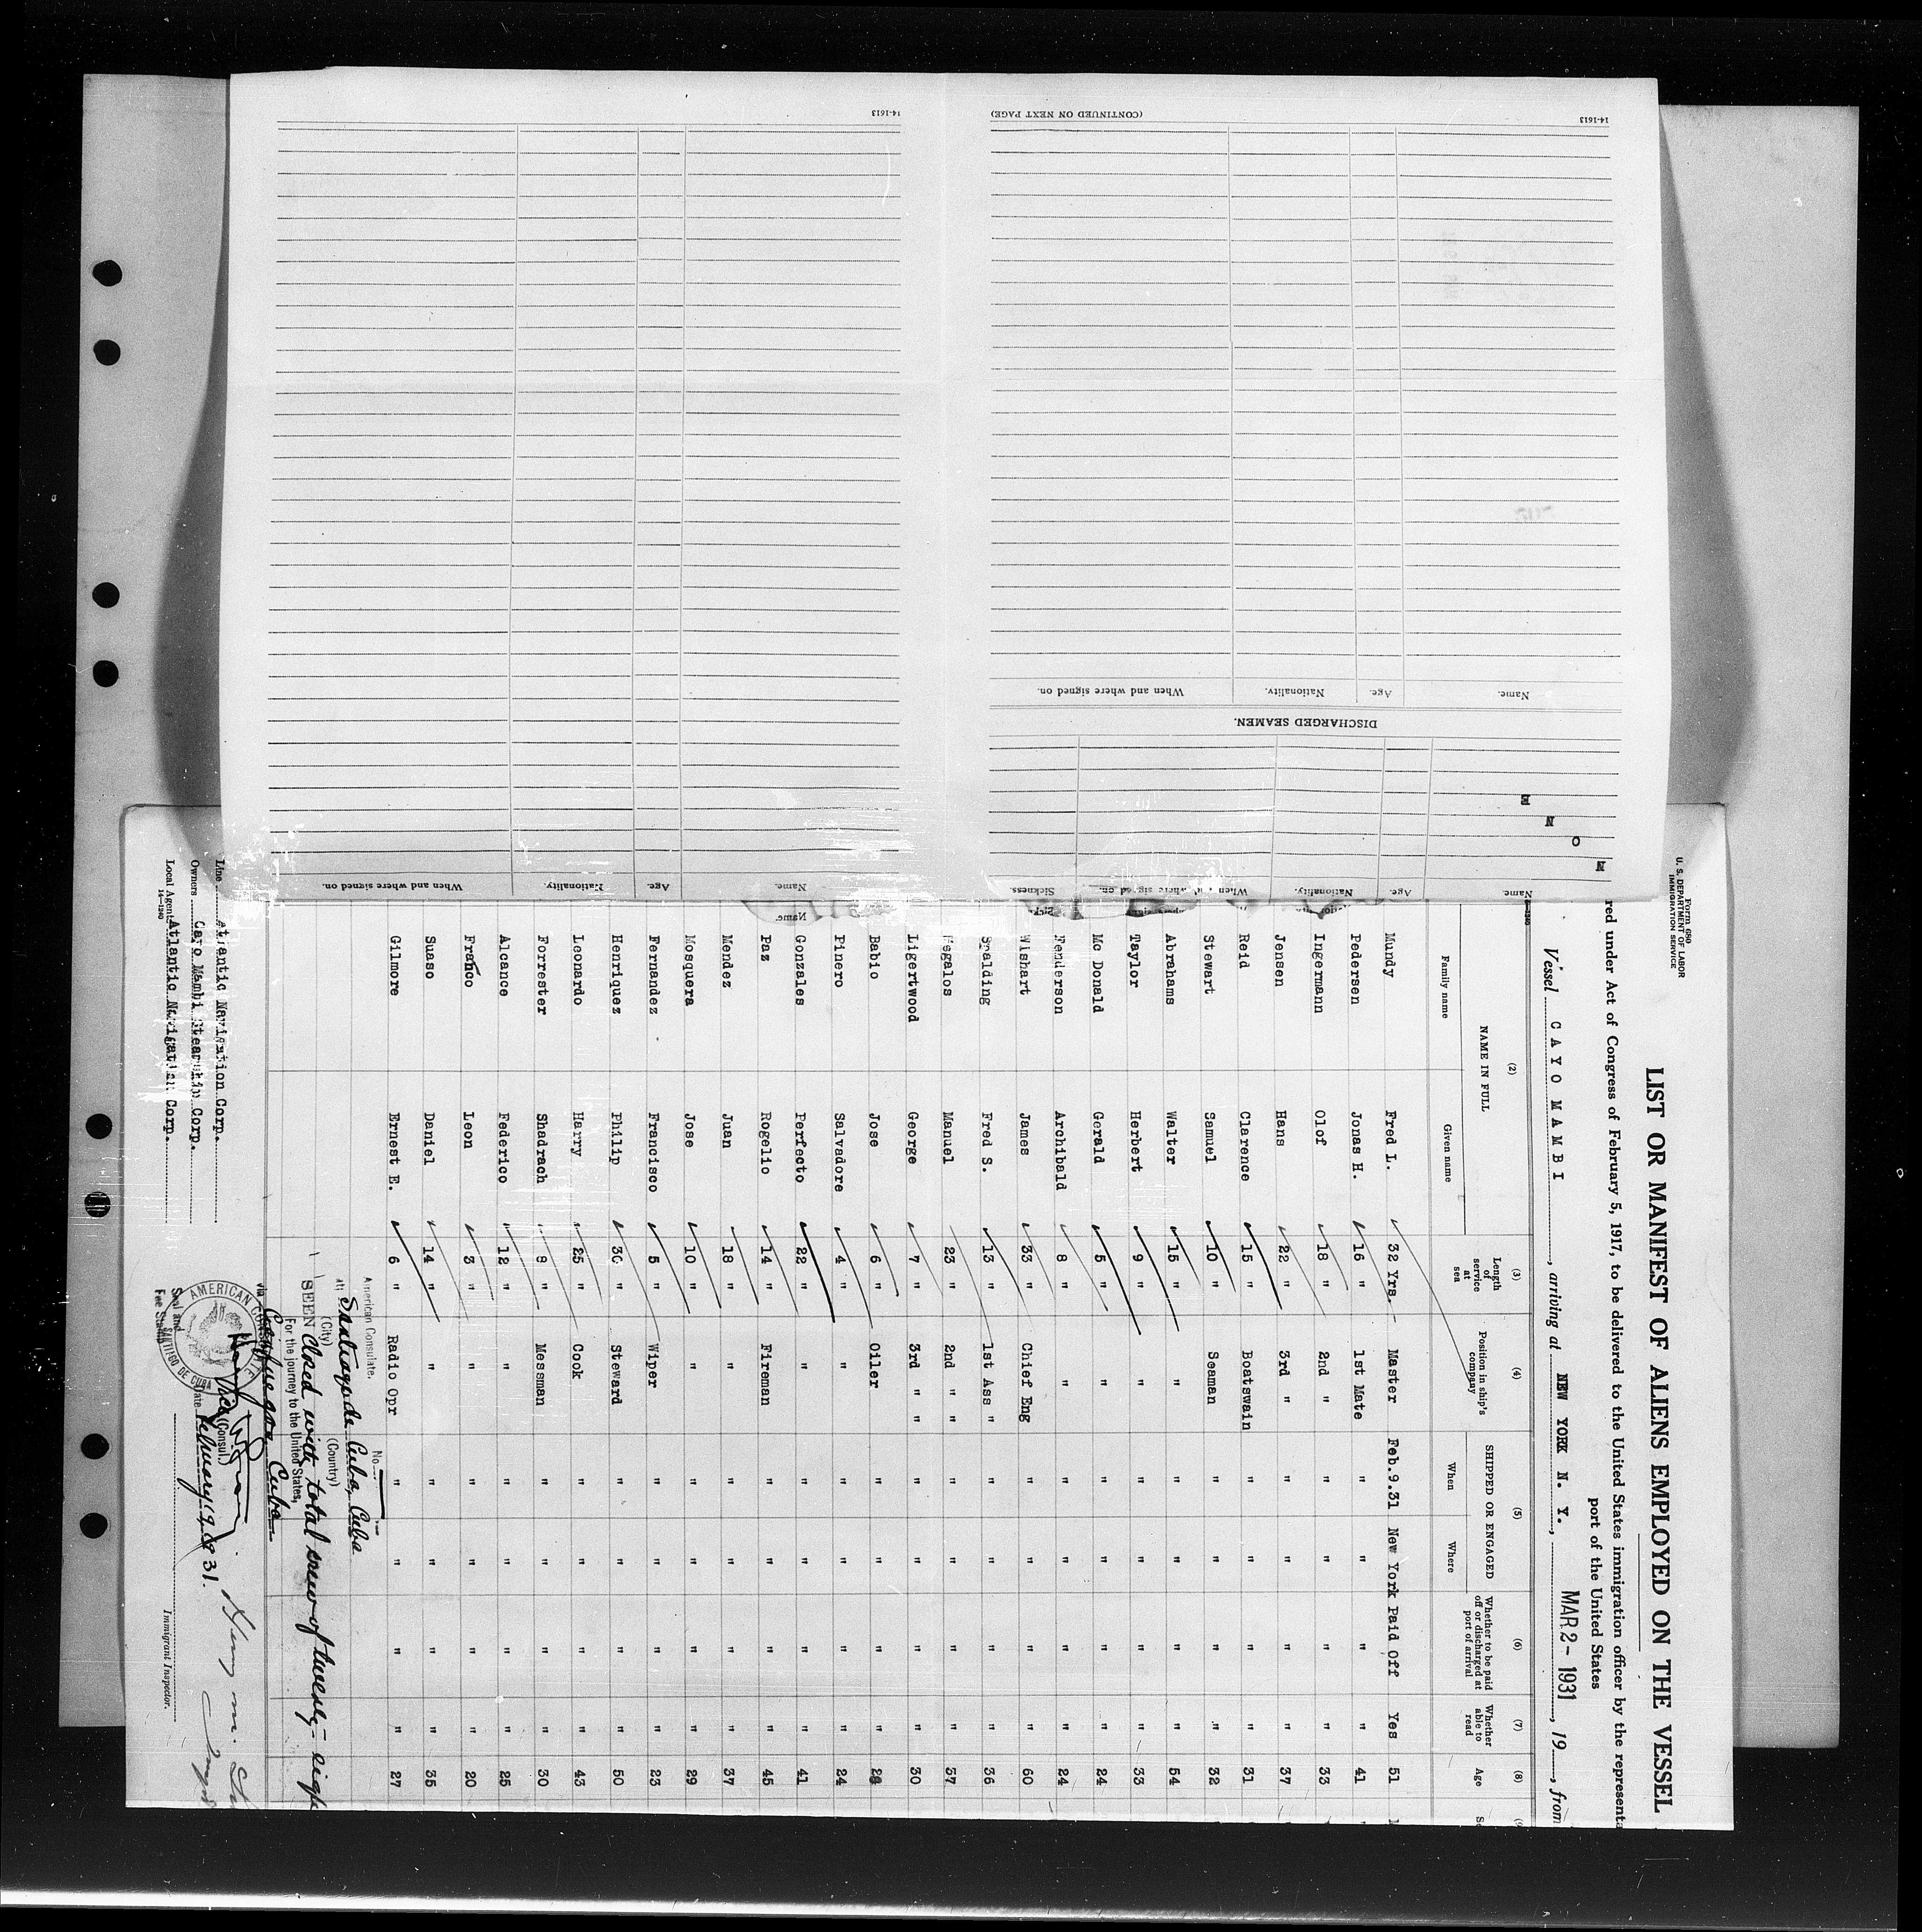 14-1613
(CONTINUED ON NEXT PAGE)
14-1613
Name. Age. Nationality. When and where signed on.
DISCHARGED SEAMEN.
N
O
N
E
Name. Age. Nationality. When and where signed on. Sickness.
Name. Age. Nationality. When and where signed on.
Form 680
U. S. DEPARTMENT OF LABOR
IMMIGRATION SERVICE
LIST OR MANIFEST OF ALIENS EMPLOYED ON THE VESSEL
red under Act of Congress of February 5, 1917, to be delivered to the United States immigration officer by the representa
port of the United States
Vessel CAYO MAMBI, arriving at NEW YORK N. Y., MAR 2- 1931, 19, from
(2) (3) (4) (5) (6) (7) (8)
NAME IN FULL
Family name Given name
Length of service at sea
Position in ship's company
SHIPPED OR ENGAGED
When Where
Whether to be paid off or discharged at port of arrival
Whether able to read
Age
Mundy Fred L. 32 Yrs. Master Feb.9.31 New York Paid Off Yes 51
Pedersen Jonas H. 16 " 1st Mate " " " " 41
Ingermann Olof 18 " 2nd " " " " " 33
Jensen Hans 22 " 3rd " " " " " 37
Reid Clarence 15 " Boatswain " " " " 31
Stewart Samuel 10 " Seaman " " " " 32
Abrahams Walter 15 " " " " " " 54
Taylor Herbert 9 " " " " " " 33
Mc Donald Gerald 5 " " " " " " 24
Henderson Archibald 8 " " " " " " 24
Wishart James 33 " Chief Eng " " " " 60
Spalding Fred S. 13 " 1st Ass " " " " " 36
Megalos Manuel 23 " 2nd " " " " " " 37
Ligertwood George 7 " 3rd " " " " " " 30
Babio Jose 6 " Oiler " " " "
Pinero Salvadore 4 " " " " " " 24
Gonzales Perfecto 22 " " " " " " 41
Paz Rogelio 14 " Fireman " " " " 45
Mendez Juan 18 " " " " " " 37
Mosquera Jose 10 " " " " " " 29
Fernandez Francisco 5 " Wiper " " " " 23
Henriquez Philip 30 " Steward " " " " 50
Leonardo Harry 25 " Cook " " " " 43
Forrester Shadrach 8 " Messman " " " " 30
Alcance Federico 12 " " " " " " 25
Franco Leon 3 " " " " " " 20
Suaso Daniel 14 " " " " " " 35
Gilmore Ernest E. 6 " Radio Opr " " " " 27
American Consulate.
No.
at Santiago de Cuba, Cuba
(City) (Country)
SEEN Closed with total crew of twenty-eight
For the journey to the United States,
via Cienfuegos Cuba
(Consul)
Date February 19, 1931.
AMERICAN CONSULATE
SANTIAGO DE CUBA
Seal and
Fee Stamp
Line Atlantic Navigation Corp.
Owners Cayo Mambi Steamship Corp.
Local Agents Atlantic Navigation Corp.
14-1240
Immigrant Inspector.